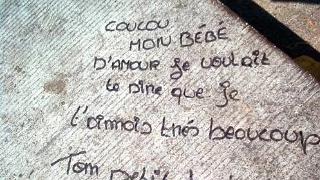 COUCOU
MON BÉBÉ
D'AMOUR je voulait
te dire que je
t'aimais très beaucoup
Tom